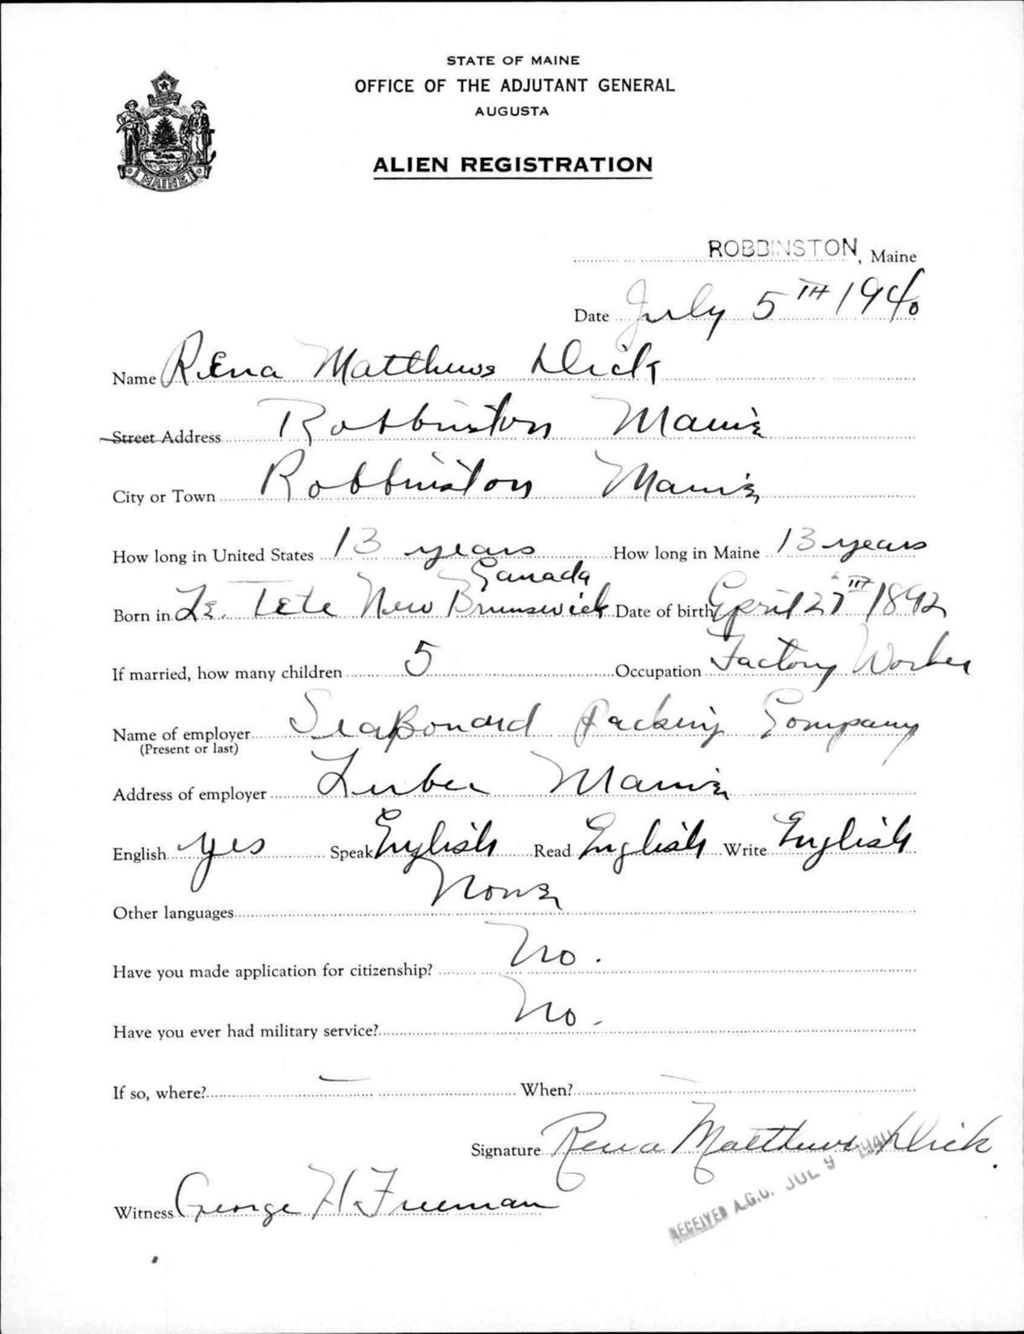 STATE OF MAINE
OFFICE OF THE ADJUTANT GENERAL
AUGUSTA
ALIEN REGISTRATION
MAINE
ROBBINSTON, Maine
Date July 5TH 1940
Name Rena Matthews Dick
Street Address Robbinston Maine
City or Town Robbinston Maine
How long in United States 13 years How long in Maine 13 years
Canada
Born in Le. Tete New Brunswick Date of birth April 27TH 1892
If married, how many children 5 Occupation Factory Worker
Name of employer SeaBoard Packing Company
(Present or last)
Address of employer Lubec Maine
English yes Speak English Read English Write English
Other languages None
Have you made application for citizenship? No.
Have you ever had military service? No.
If so, where? — When? —
Signature Rena Matthews Dick.
Witness George H. Freeman
RECEIVED A.G.O. JUL 9 1940